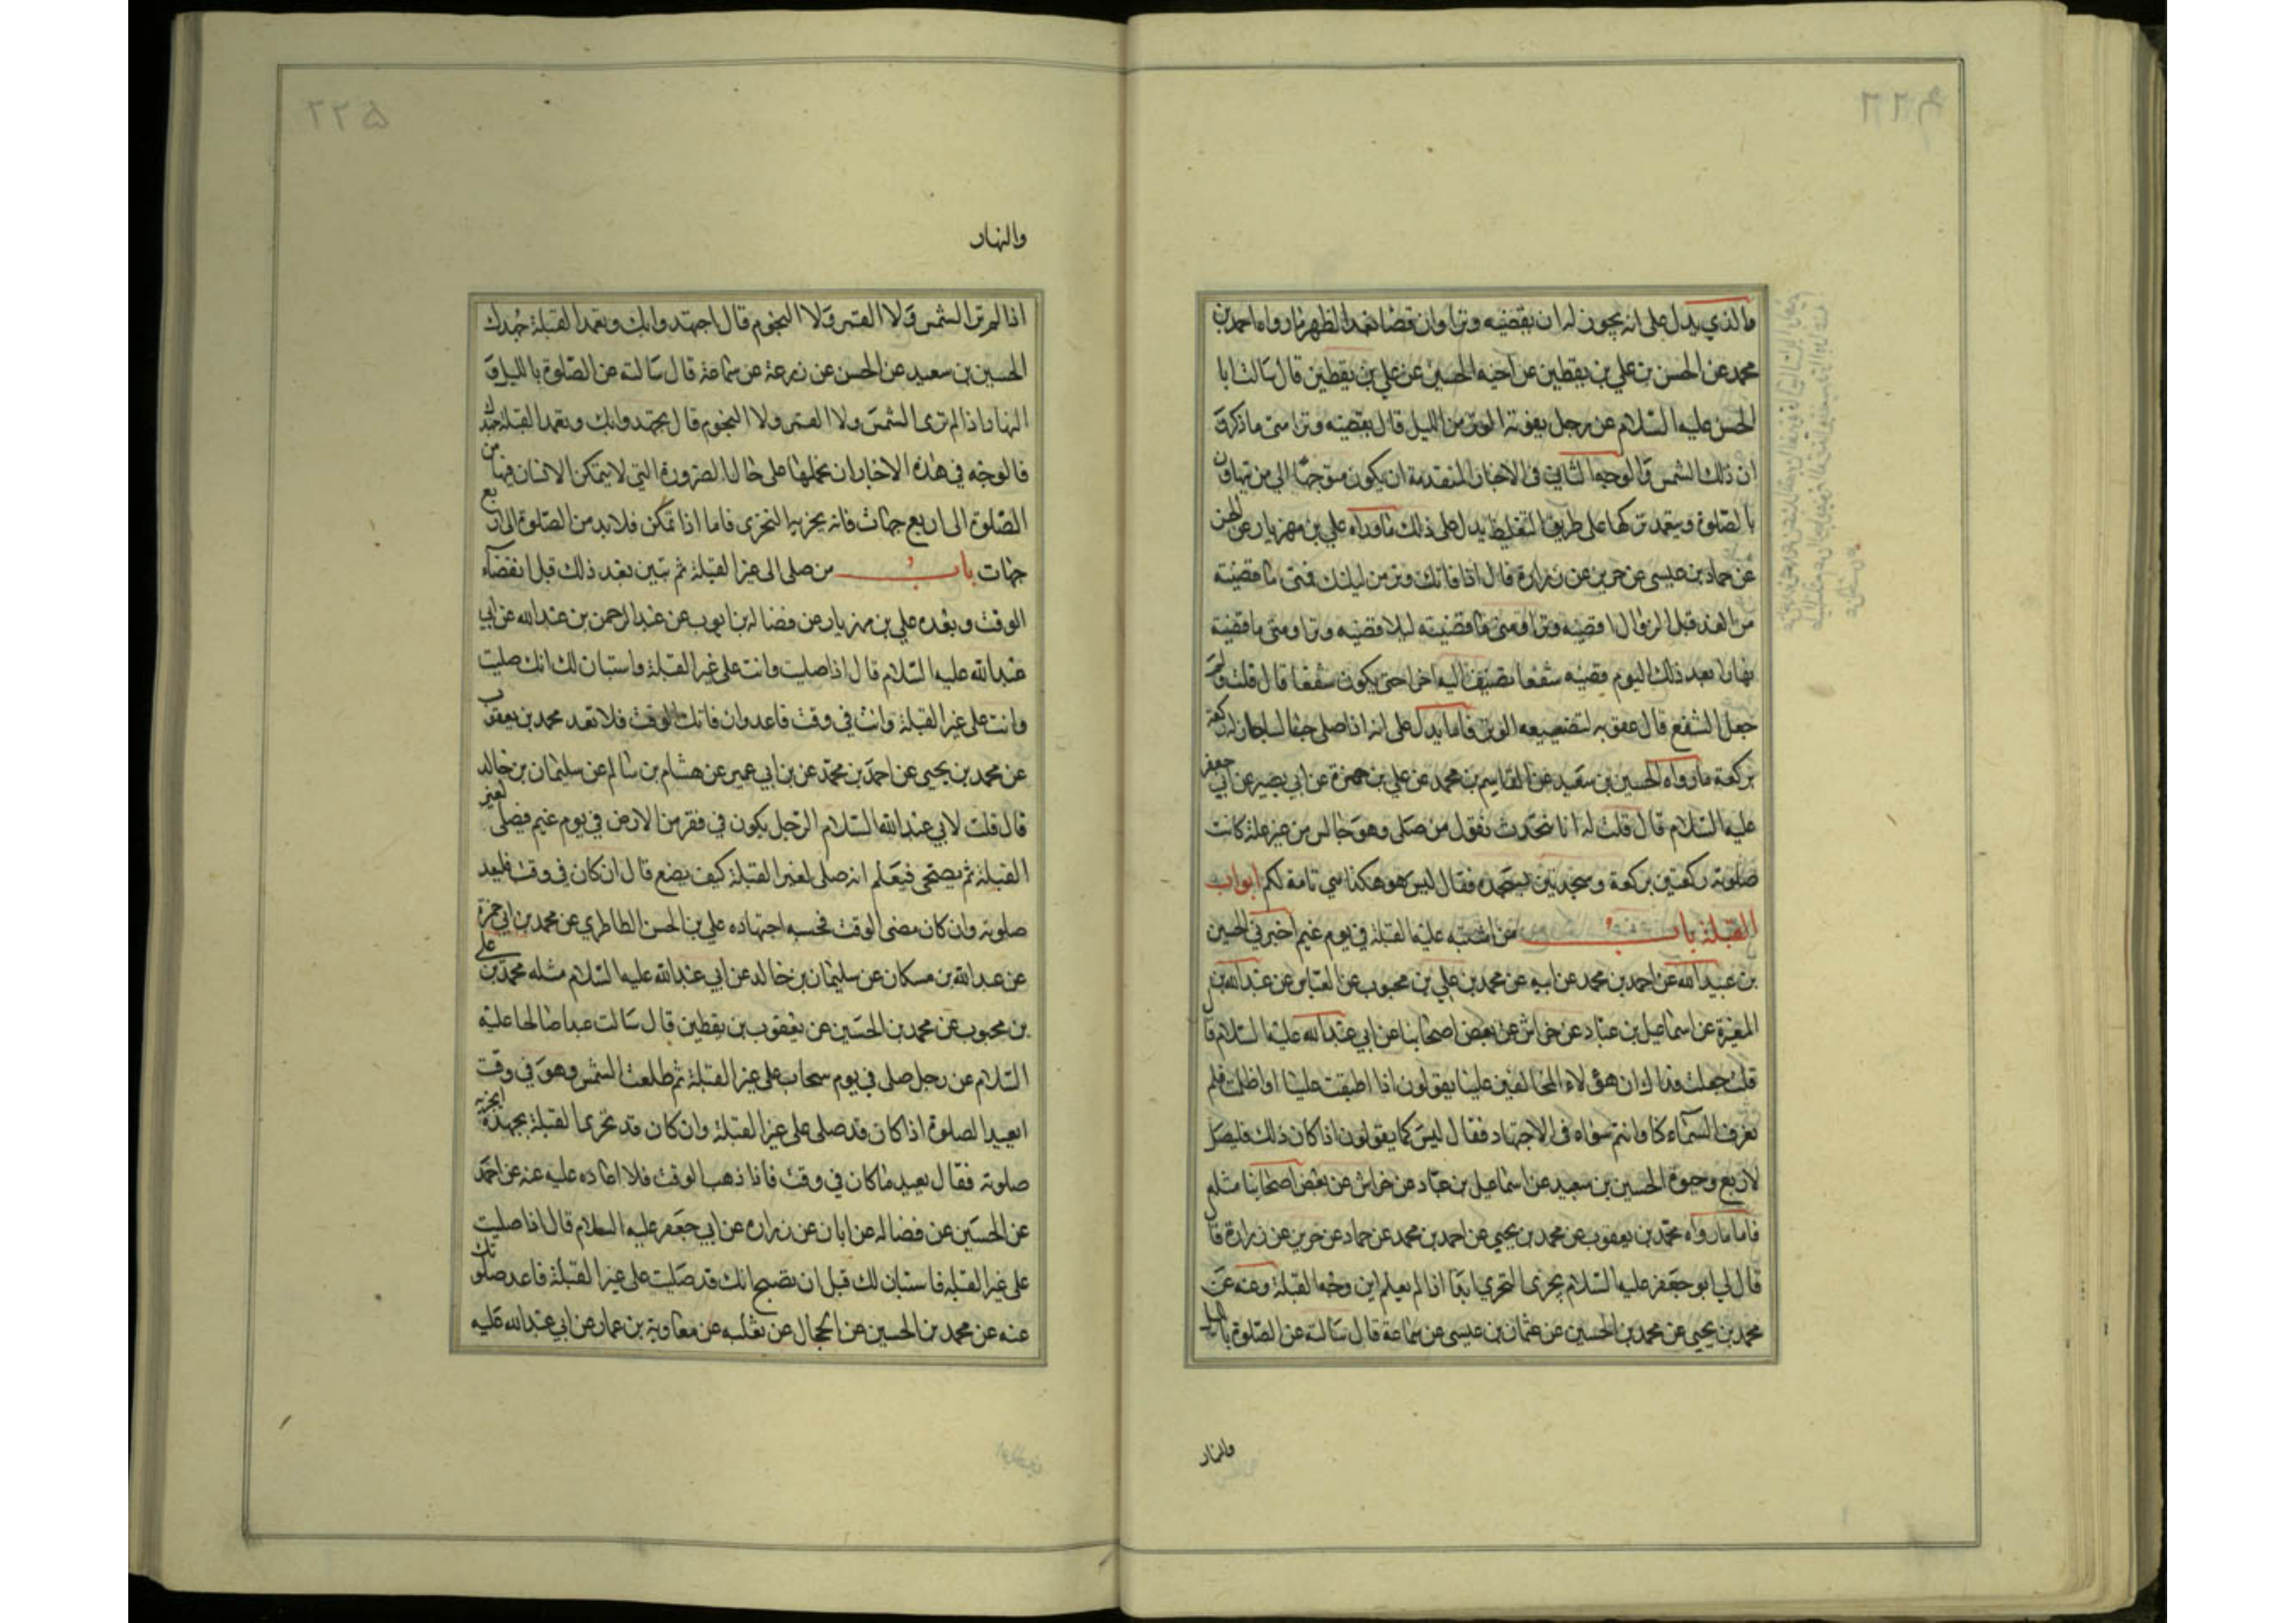 والذي يدل على انه يجوز له ان يقضيه وترا وان قضا بعد الظهر ما رواه احمد بن
محمد عن الحسن بن علي بن يقطين عن اخيه الحسين عن علي بن يقطين قال سالت ابا
الحسن عليه السلام عن رجل يفوته الوتر من الليل قال يقضيه وترا متى ما ذكر و
ان ذلك الشمس والوجه الثاني في الاخبار المتقدمة ان يكون متوجها الي من يتهاون
بالصلوة ويتعمد تركها على طريق التغليظ يدل على ذلك ما رواه علي بن مهزيار عن الحسن
عن حماد بن عيسى عن حريز عن زرارة قال اذا فاتك وتر من ليلتك فمتى ما قضيته
من الغد قبل الزوال اقضيه وترا ومتى ما قضيته ليلا قضيه وترا ومتى ما قضيته
نهارا بعد ذلك اليوم قضيته شفعا تضيف اليه اخر احتى يكون شفعا قال قلت ولم
جعل الشفع قال عقوبه لتضييعه الوتر فاما يدل على انه اذا صلى جالسا جاز له ركعة
بركعة ما رواه الحسين بن سعيد عن القاسم بن محمد عن علي بن حمزة عن ابي بصير عن ابي جعفر
عليه السلام قال قلت له انا نتحدث نقول من صلى وهو جالس من غير علة كانت
صلوته ركعتين بركعة وسجدتين بسجده فقال ليس هو هكذا هي تامة لكم ابواب
القبلة باب من اشتبه عليه القبلة في يوم غيم اخبرني الحسين
بن عبيد الله عن احمد بن محمد عن ابيه عن محمد بن علي بن محبوب عن العباس عن عبد الله بن
المغيرة عن اسماعيل بن عباد عن خراش عن بعض اصحابنا عن ابي عبد الله عليه السلام قال
قلت جعلت فداك ان هؤلاء المخالفين علينا يقولون اذا اطبقت علينا او اظلمت فلم
نعرف السماء كنا وانتم سواء في الاجتهاد فقال ليس كما يقولون اذا كان ذلك فليصل
لاربع وجوه الحسين بن سعيد عن اسماعيل بن عباد عن خراش عن بعض اصحابنا مثله
فاما ما رواه محمد بن يعقوب عن محمد بن يحيى عن احمد بن محمد عن حماد عن حريز عن زرارة قال
قال لي ابو جعفر عليه السلام يجزى التحري ابدا اذا لم يعلم اين وجه القبلة وعنه عن
محمد بن يحيى عن محمد بن الحسين عن عثمان بن عيسى عن سماعة قال سالته عن الصلوة بالليل
والنهار
والنهار
اذا لم تر الشمس ولا القمر ولا النجوم قال اجتهد وايك وتعمد القبلة جهدك
الحسين بن سعيد عن الحسن عن زرعة عن سماعة قال سالته عن الصلوة بالليل و
النهار اذا لم ترى الشمس ولا القمر ولا النجوم قال يجتهد وايك وتعمد القبلة جهدك
فالوجه في هذه الاخبار ان نحملها على حال الضرورة التي لا يتمكن الانسان فيها من
الصلوة الى اربع جهات فانه يجزيه التحرى فاما اذا تمكن فلابد من الصلوة الى اربع
جهات باب من صلى الى غير القبلة ثم تبين بعد ذلك قبل انقضاء
الوقت وبعده علي بن مهزيار عن فضالة بن ايوب عن عبد الرحمن بن عبد الله عن ابي
عبد الله عليه السلام قال اذا صليت وانت على غير القبلة واستبان لك انك صليت
وانت على غير القبلة وانت في وقت فاعد وان فاتك الوقت فلا تعد محمد بن يعقوب
عن محمد بن يحيى عن احمد بن محمد عن بن ابي عمير عن هشام بن سالم عن سليمان بن خالد
قال قلت لابي عبد الله السلام الرجل يكون في قفر من الارض في يوم غيم فيصلي لغير
القبلة ثم يصحى فيعلم انه صلى لغير القبلة كيف يصنع قال ان كان في وقت فليعد
صلوته وان كان مضى الوقت فحسبه اجتهاده علي بن الحسن الطاطري عن محمد بن ابي حمزة
عن عبد الله بن مسكان عن سليمان بن خالد عن ابي عبد الله عليه السلام مثله محمد بن علي
بن محبوب عن محمد بن الحسين عن يعقوب بن يقطين قال سالت عبدا صالحا عليه
السلام عن رجل صلى في يوم سحاب على غير القبلة ثم طلعت الشمس وهو في وقت
ايعيد الصلوة اذا كان قد صلى على غير القبلة وان كان قد تحرى القبلة بجهده ايجزيه
صلوته فقال يعيد ما كان في وقت فاذا ذهب الوقت فلا اعاده عليه عنه عن احمد
عن الحسين عن فضاله عن ابان عن زراره عن ابي جعفر عليه السلام قال اذا صليت
على غير القبله فاستبان لك قبل ان تصبح انك قد صليت على غير القبلة فاعد صلوتك
عنه عن محمد بن الحسين عن الحجال عن ثعلبه عن معاوية بن عمار عن ابي عبد الله عليه